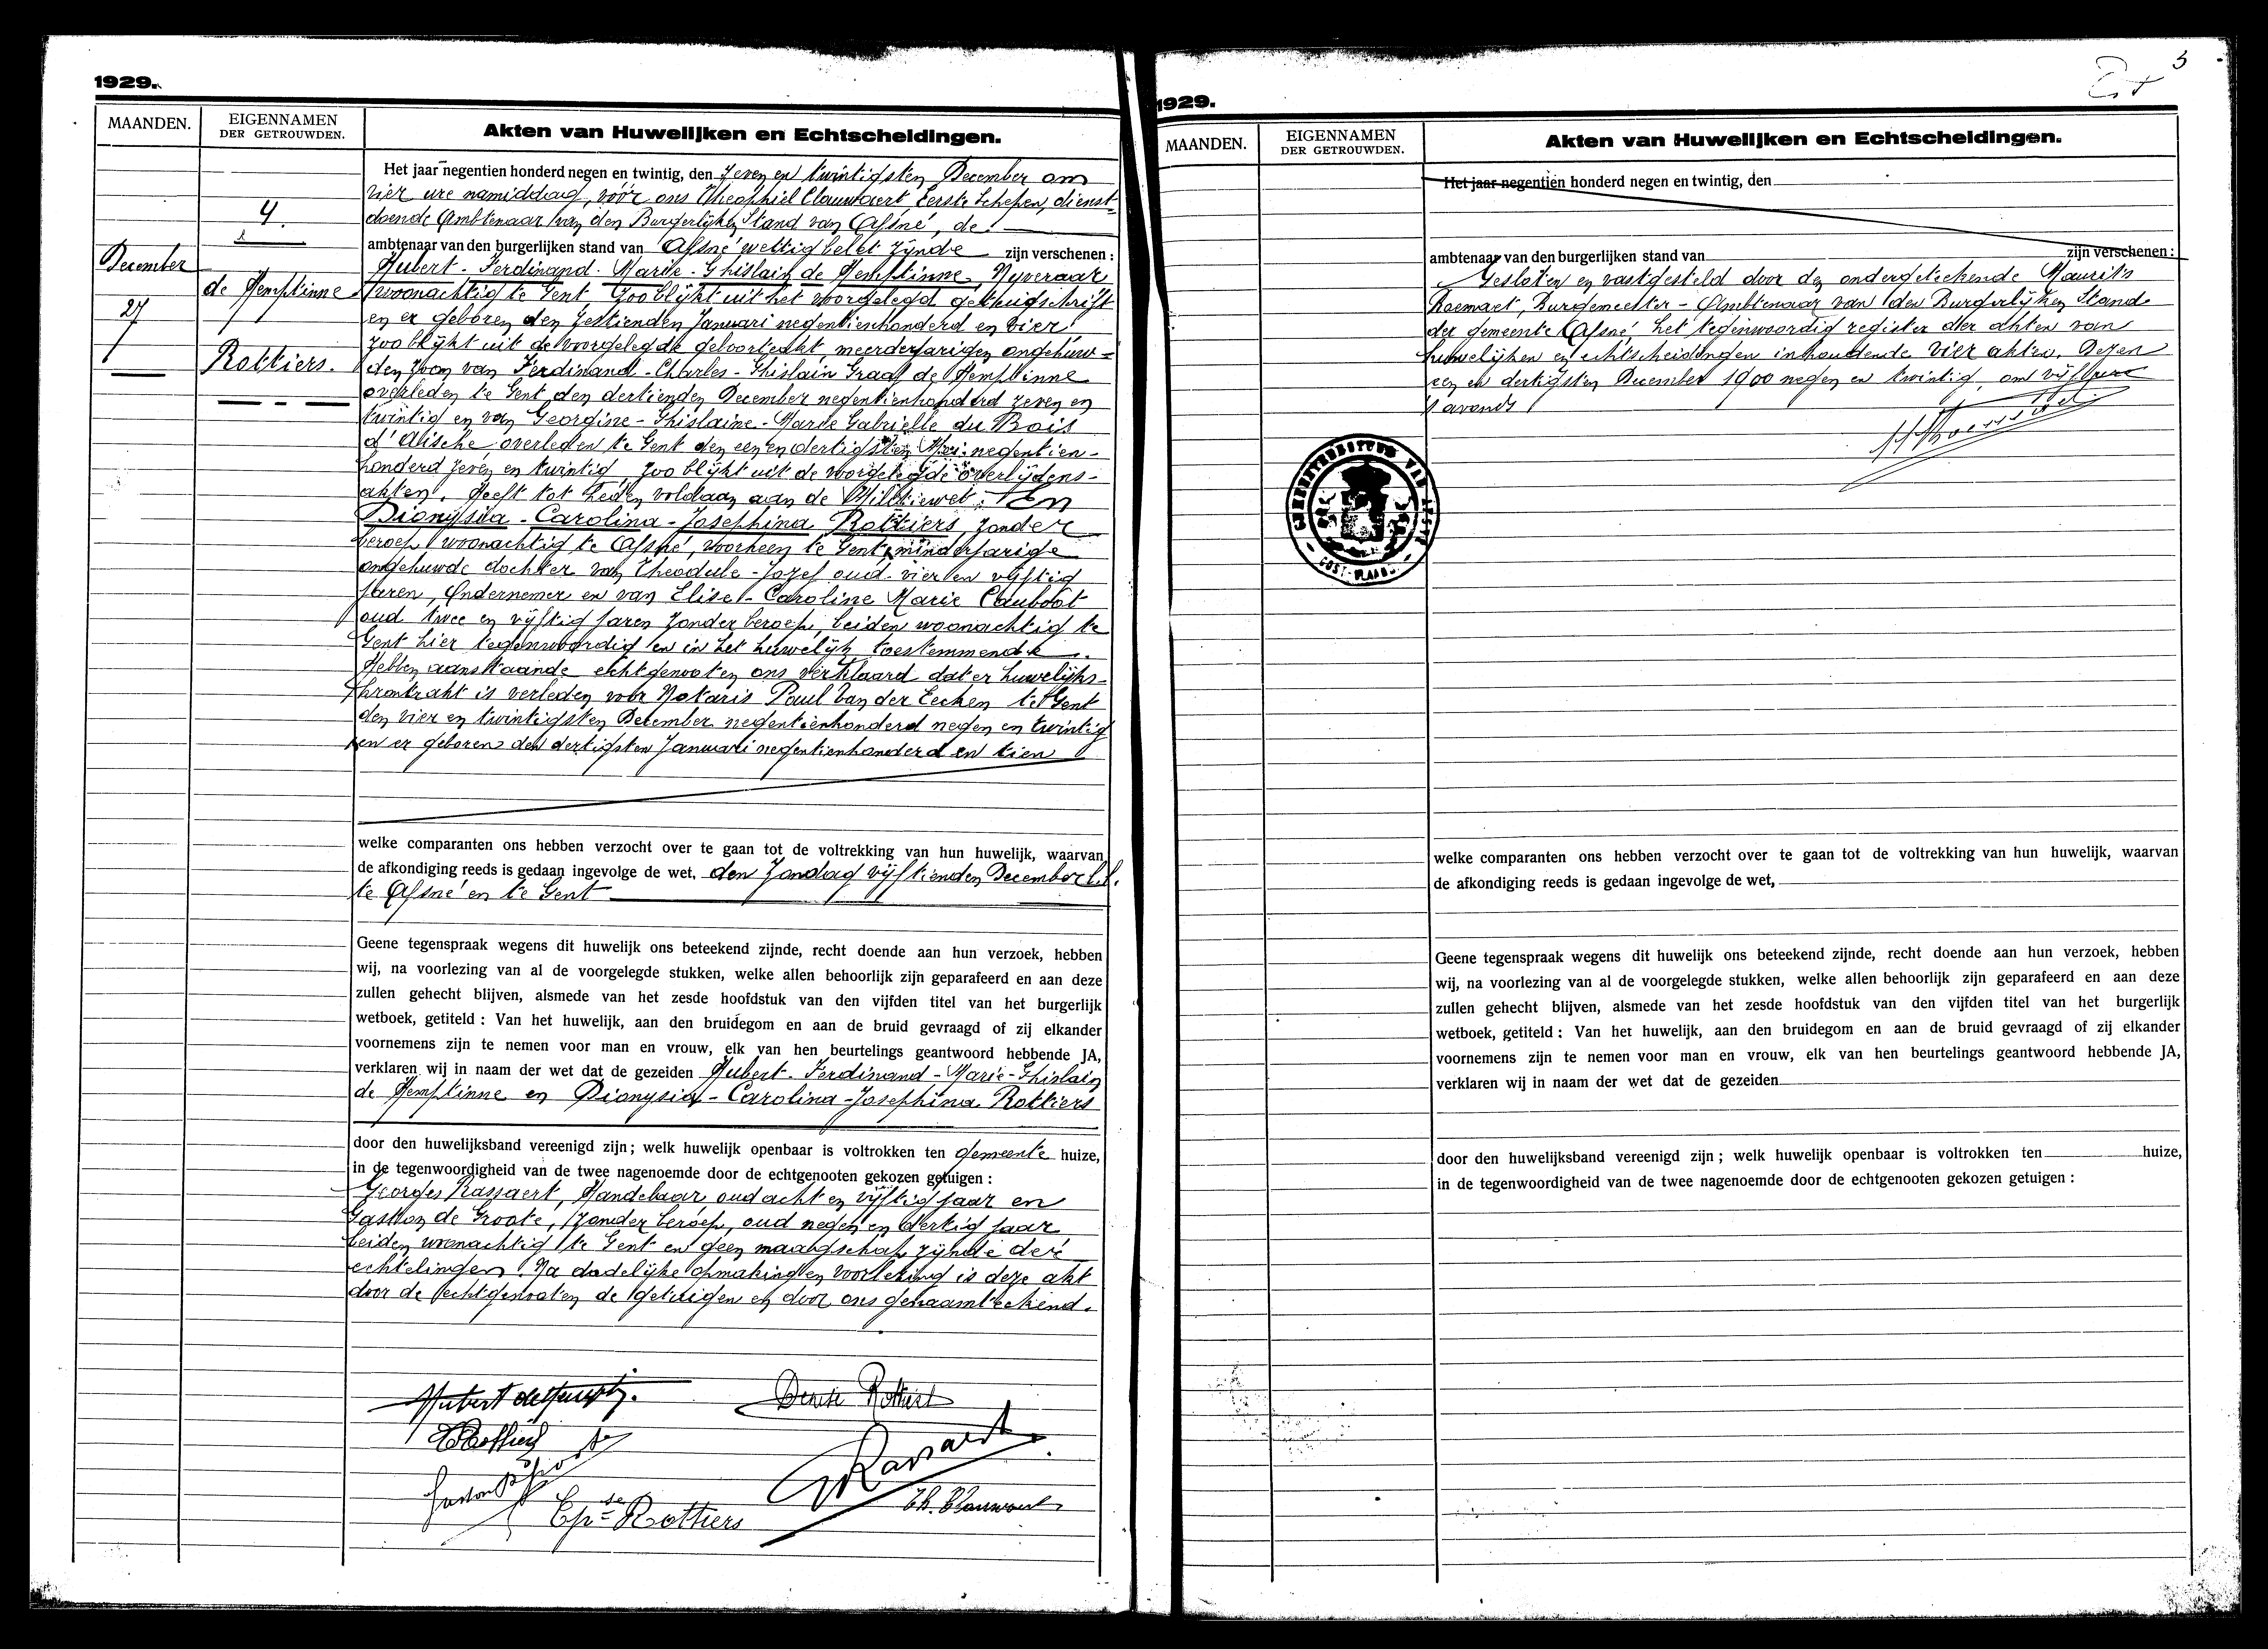 1929.
MAANDEN.
EIGENNAMEN
DER GETROUWDEN.
Akten van Huwelijken en Echtscheidingen.
4.
December
27
de Hemptinne
Rottiers.
Het jaar negentien honderd negen en twintig, den zeven en twintigsten December om
vier ure namiddag, vóór ons Theophiel Clauwaert Eerste Schepen, dienst-
doende Ambtenaar van den Burgerlijken Stand van Afsné, de
ambtenaar van den burgerlijken stand van Afsné wettig belet zijnde zijn verschenen:
Hubert-Ferdinand-Marie-Ghislain de Hemptinne, Nyveraar
woonachtig te Gent, zoo blijkt uit het voorgelegd getuigschrift
en er geboren den zestienden Januari negentienhonderd en vier
zoo blijkt uit de voorgelegde geboorteakt, meerderjarigen ongehuw-
den zoon van Ferdinand-Charles-Ghislain Graaf de Hemptinne
overleden te Gent den dertienden December negentienhonderd zeven en
twintig en van Georgine-Ghislaine-Marie Gabrielle du Bois
d'Aische overleden te Gent den een en dertigsten Mei negentien-
honderd zeven en twintig, zoo blijkt uit de voorgelegde overlijdens-
akten. Heeft tot heden voldaan aan de Militiewet; En
Dionysia-Carolina-Josephina Rottiers, zonder
beroep, woonachtig te Afsné, voorheen te Gent, minderjarige
ongehuwde dochter van Theodule-Jozef oud vier en vijftig
jaren, Ondernemer en van Elise-Caroline Marie Cauboot
oud twee en vijftig jaren zonder beroep, beiden woonachtig te
Gent hier tegenwoordig en in het huwelijk toestemmende.
Hebben aanstaande echtgenooten ons verklaard dat er huwelijks-
kontrakt is verleden voor Notaris Paul Van der Eecken te Gent
den vier en twintigsten December negentienhonderd negen en twintig
en er geboren den dertigsten Januari negentienhonderd en tien
welke comparanten ons hebben verzocht over te gaan tot de voltrekking van hun huwelijk, waarvan
de afkondiging reeds is gedaan ingevolge de wet, den Zondag vijftienden December l.l.
te Afsné en te Gent
Geene tegenspraak wegens dit huwelijk ons beteekend zijnde, recht doende aan hun verzoek, hebben
wij, na voorlezing van al de voorgelegde stukken, welke allen behoorlijk zijn geparafeerd en aan deze
zullen gehecht blijven, alsmede van het zesde hoofdstuk van den vijfden titel van het burgerlijk
wetboek, getiteld : Van het huwelijk, aan den bruidegom en aan de bruid gevraagd of zij elkander
voornemens zijn te nemen voor man en vrouw, elk van hen beurtelings geantwoord hebbende JA,
verklaren wij in naam der wet dat de gezeiden Hubert-Ferdinand-Marie-Ghislain
de Hemptinne en Dionysia-Carolina-Josephina Rottiers
door den huwelijksband vereenigd zijn; welk huwelijk openbaar is voltrokken ten gemeente huize,
in de tegenwoordigheid van de twee nagenoemde door de echtgenooten gekozen getuigen :
Georges Rassaert, Handelaar, oud acht en vijftig jaar en
Gaston de Groote, zonder beroep, oud negen en dertig jaar
beiden woonachtig te Gent en geen maagschap zijnde der
echtelingen. Na dadelijke opmaking en voorlezing is deze akt
door de echtgenooten de getuigen en door ons genaamteekend.
Hubert deHemptinne
Denise Rottiers
Rottiers
Rassaert
Epse Rottiers
Th. Clauwaert
3
1929.
MAANDEN.
EIGENNAMEN
DER GETROUWDEN.
Akten van Huwelijken en Echtscheidingen.
Het jaar negentien honderd negen en twintig, den
ambtenaar van den burgerlijken stand van zijn verschenen:
Gesloten en vastgesteld door den ondergeteekende Maurits
Burgemeester-Ambtenaar van den Burgerlijken Stand
der gemeente Afsné, het tegenwoordig register der akten van
huwelijken en echtscheidingen inhoudende vier akten. Dezen
een en dertigsten December 1900 negen en twintig, om vijf ure
's avonds
GEMEENTEBESTUUR VAN AFSNÉ
OOST-VLAAND.
welke comparanten ons hebben verzocht over te gaan tot de voltrekking van hun huwelijk, waarvan
de afkondiging reeds is gedaan ingevolge de wet,
Geene tegenspraak wegens dit huwelijk ons beteekend zijnde, recht doende aan hun verzoek, hebben
wij, na voorlezing van al de voorgelegde stukken, welke allen behoorlijk zijn geparafeerd en aan deze
zullen gehecht blijven, alsmede van het zesde hoofdstuk van den vijfden titel van het burgerlijk
wetboek, getiteld : Van het huwelijk, aan den bruidegom en aan de bruid gevraagd of zij elkander
voornemens zijn te nemen voor man en vrouw, elk van hen beurtelings geantwoord hebbende JA,
verklaren wij in naam der wet dat de gezeiden
door den huwelijksband vereenigd zijn; welk huwelijk openbaar is voltrokken ten huize,
in de tegenwoordigheid van de twee nagenoemde door de echtgenooten gekozen getuigen :